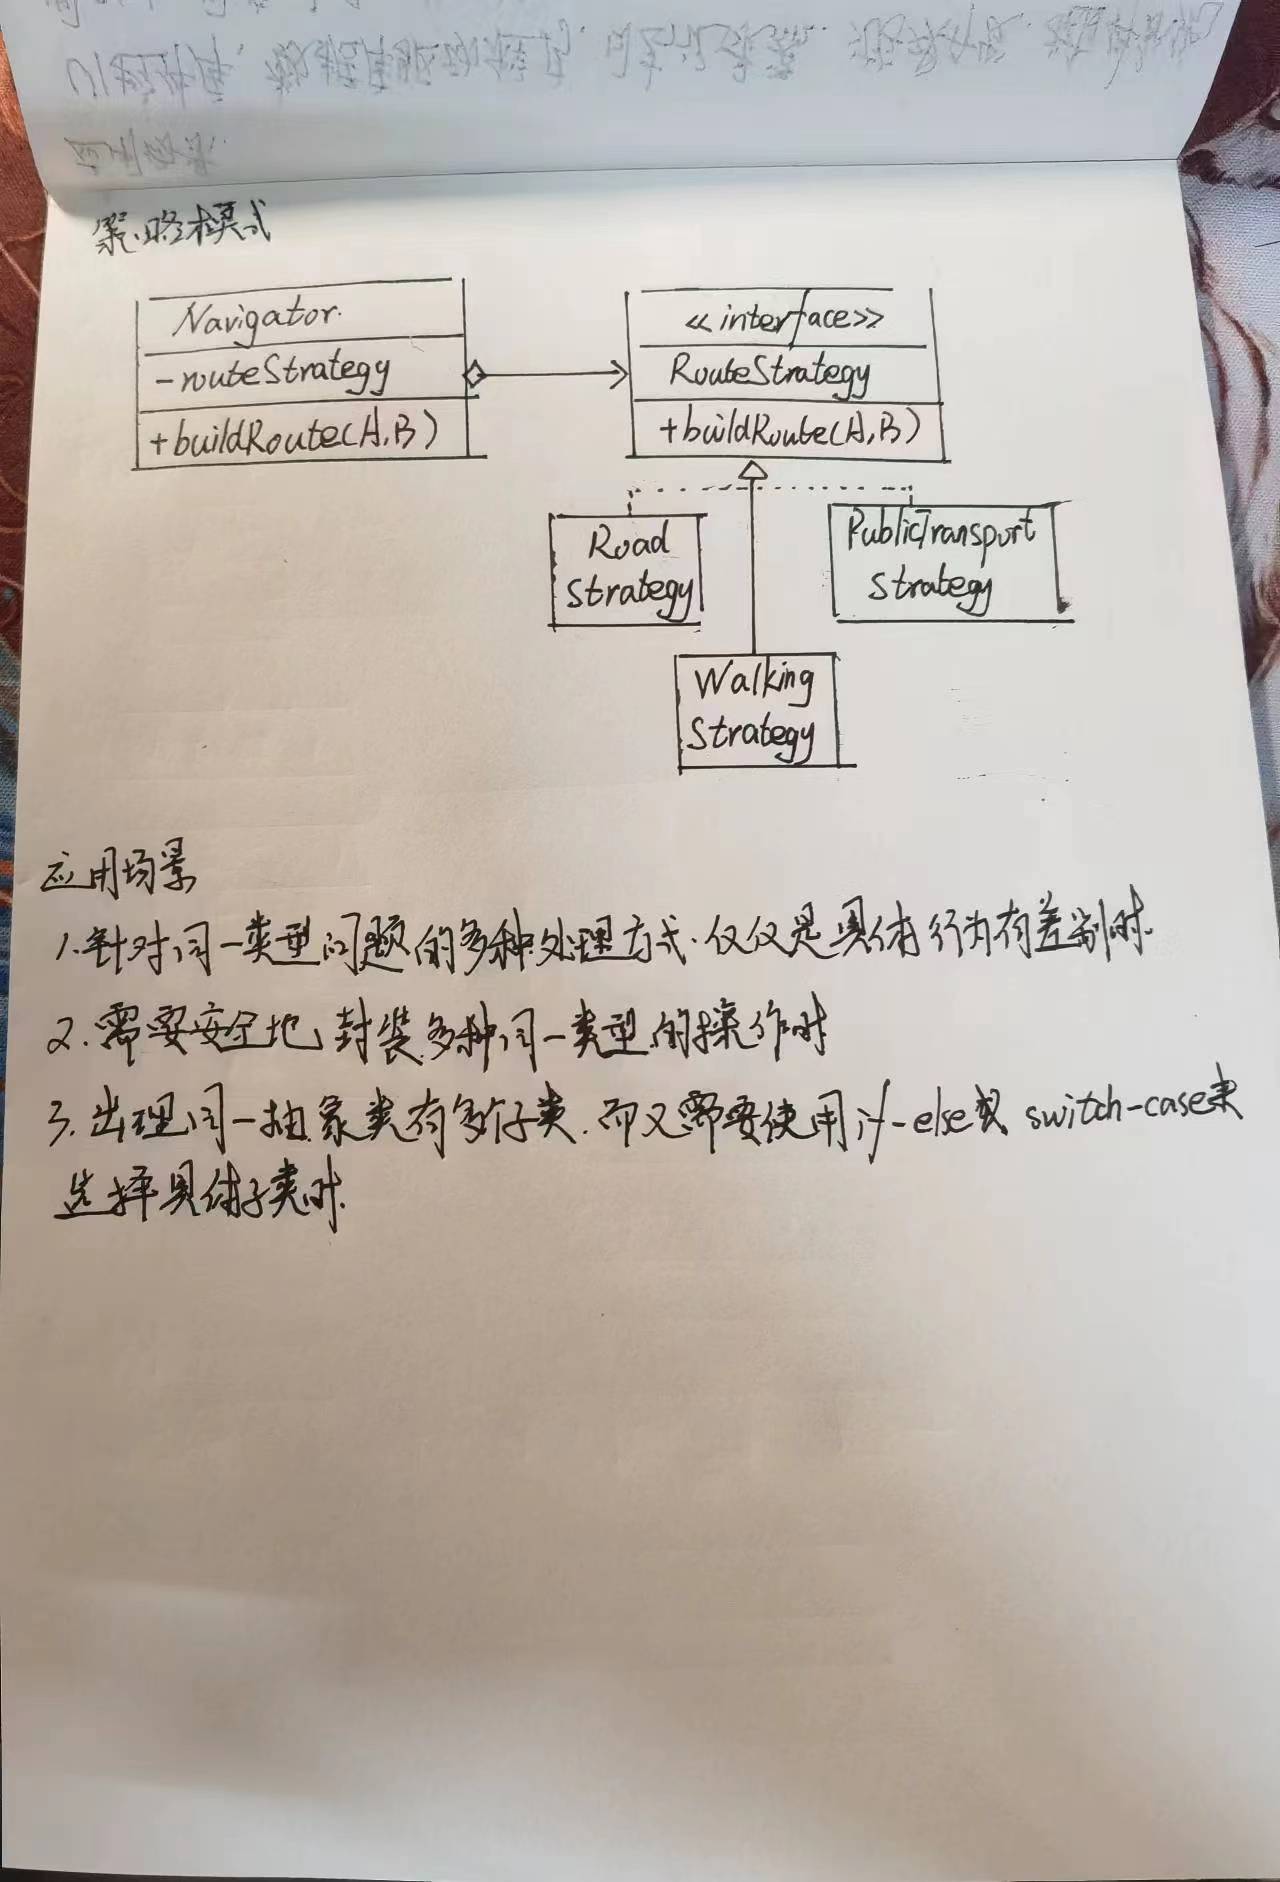 策略模式
Navigator.
-routeStrategy
+buildRoute(A,B)
<<interface>>
RouteStrategy
+buildRoute(A,B)
Road
Strategy
PublicTransport
Strategy
Walking
Strategy
应用场景
1.针对同一类型问题的多种处理方式.仅仅是具体行为有差别时.
2.需要安全地封装多种同一类型的操作时
3.出现同一抽象类有多个子类.而又需要使用if-else或switch-case来
选择具体子类时.